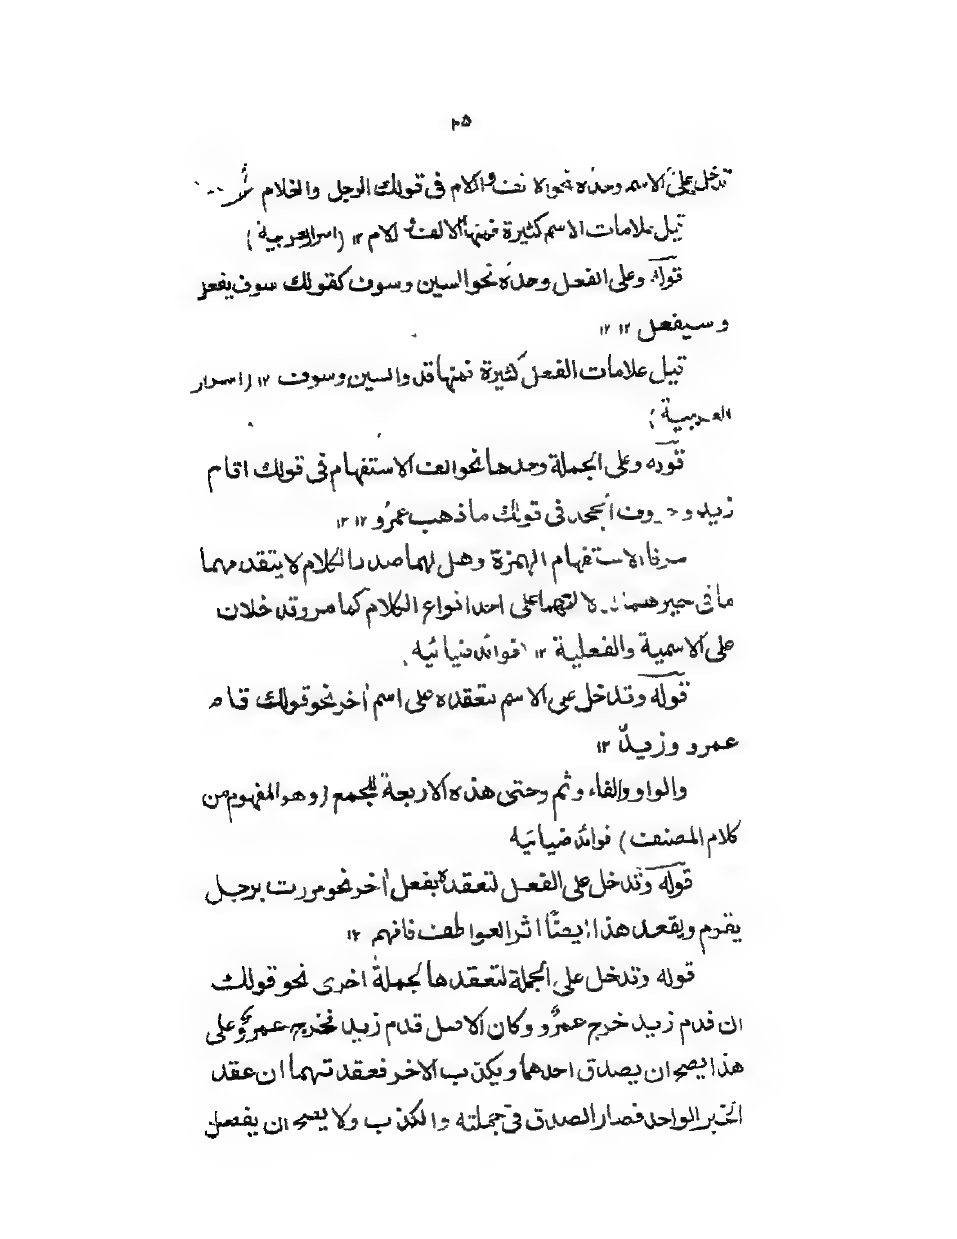 ٢٥
تدخل على الاسم وحده نحو الالف واللام فى قولك الرجل والغلام
قيل علامات الاسم كثيرة فمنها الالف واللام ١٢ (اسرار العربية)
قوله وعلى الفعل وحده نحو السين وسوف كقولك سوف يفعل
وسيفعل ١٢ ١٢
قيل علامات الفعل كثيرة فمنها قد والسين وسوف ١٢ (اسرار
العربية)
قوله وعلى الجملة وحدها نحو الف الاستفهام فى قولك اقام
زيد و الجحد فى قولك ما ذهب عمرو ١٢ ١٢
حرفا الاستفهام الهمزة وهل لهما صدر الكلام لا يتقدمهما
ما فى حيزهما لدلالتهما على احد انواع الكلام كما مر وتدخلان
على الاسمية والفعلية ١٢ فوائد ضيائيه
قوله وتدخل على الاسم لتعقده على اسم أخر نحو قولك قام
عمرو وزيدٌ ١٢
والواو والفاء وثم وحتى هذه الاربعة للجمع (وهو المفهوم من
كلام المصنف) فوائد ضيائيه
قوله وتدخل على الفعل لتعقده بفعل أخر نحو مررت برجل
يقوم ويقعد هذا ايضًا اثر العواطف فافهم ١٢
قوله وتدخل على الجملة لتعقدها بجملة اخرى نحو قولك
ان قدم زيد خرج عمرٌو وكان الاصل قدم زيد فخرج عمرٌو على
هذا يصح ان يصدق احدهما ويكذب الاخر فعقدتهما ان عقد
الخبر الواحد فصار الصدق فى جملته والكذب ولا يصح ان يفصل